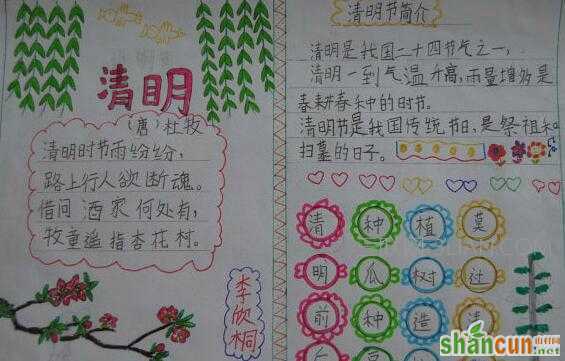 清明
(唐)杜牧
清明时节雨纷纷，
路上行人欲断魂。
借问酒家何处有，
牧童遥指杏花村。
李欣桐
清明节简介
清明是我国二十四节气之一，
清明一到气温升高，雨量增多是
春耕春种的时节。
清明节是我国传统节日，是祭祖和
扫墓的日子。
清 种 植 莫
明 瓜 树 过
前 种 造 清
豆
shancun.net
山村网